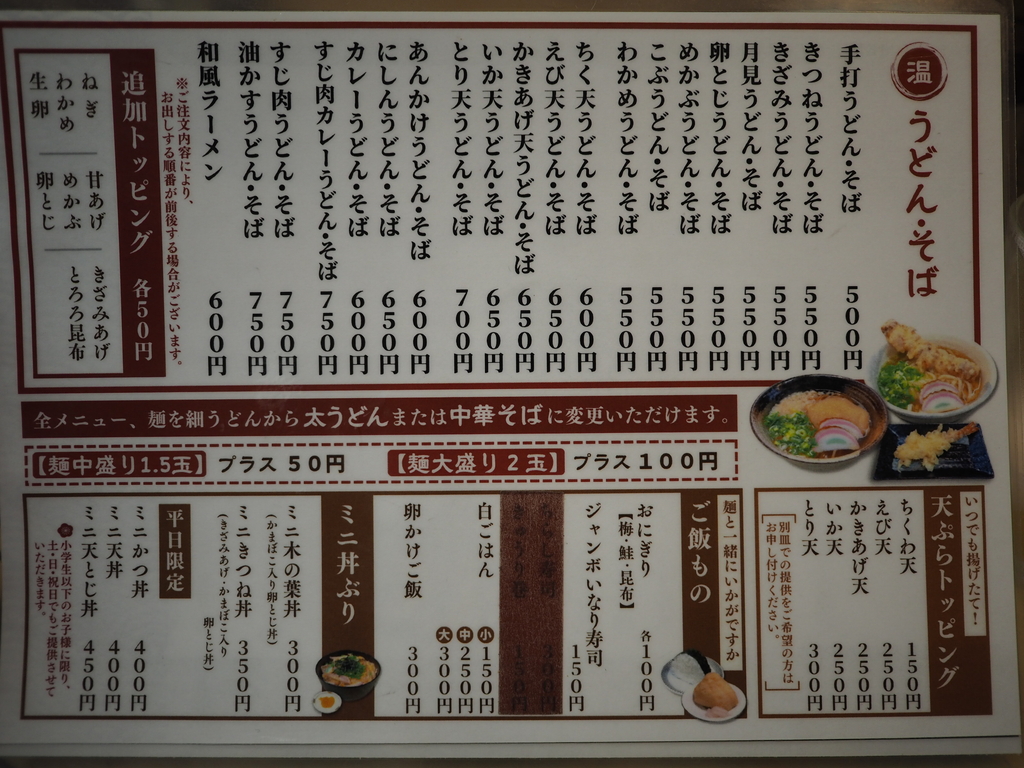 温
うどん・そば
手打うどん・そば 500円
きつねうどん・そば 550円
きざみうどん・そば 550円
月見うどん・そば 550円
卵とじうどん・そば 550円
めかぶうどん・そば 550円
こぶうどん・そば 550円
わかめうどん・そば 550円
ちく天うどん・そば 600円
えび天うどん・そば 650円
かきあげ天うどん・そば 650円
いか天うどん・そば 650円
とり天うどん・そば 700円
あんかけうどん・そば 600円
にしんうどん・そば 650円
カレーうどん・そば 600円
すじ肉カレーうどん・そば 750円
すじ肉うどん・そば 750円
油かすうどん・そば 750円
和風ラーメン 600円
※ご注文内容により、
お出しする順番が前後する場合がございます。
追加トッピング 各50円
ねぎ
わかめ
生卵
甘あげ
めかぶ
卵とじ
きざみあげ
とろろ昆布
全メニュー、麺を細うどんから太うどんまたは中華そばに変更いただけます。
【麺中盛り1.5玉】プラス50円
【麺大盛り2玉】プラス100円
いつでも揚げたて!
天ぷらトッピング
ちくわ天 150円
えび天 250円
かきあげ天 250円
いか天 250円
とり天 300円
別皿での提供をご希望の方は
お申し付けください。
麺と一緒にいかがですか
ご飯もの
おにぎり 各100円
【梅・鮭・昆布】
ジャンボいなり寿司 150円
白ごはん
小 150円
中 250円
大 300円
卵かけご飯 300円
ミニ丼ぶり
ミニ木の葉丼 300円
(かまぼこ入り卵とじ丼)
ミニきつね丼 350円
(きざみあげ・かまぼこ入り
卵とじ丼)
平日限定
ミニかつ丼 400円
ミニ天丼 400円
ミニ天とじ丼 450円
小学生以下のお子様に限り、
土・日・祝日でもご提供させて
いただきます。